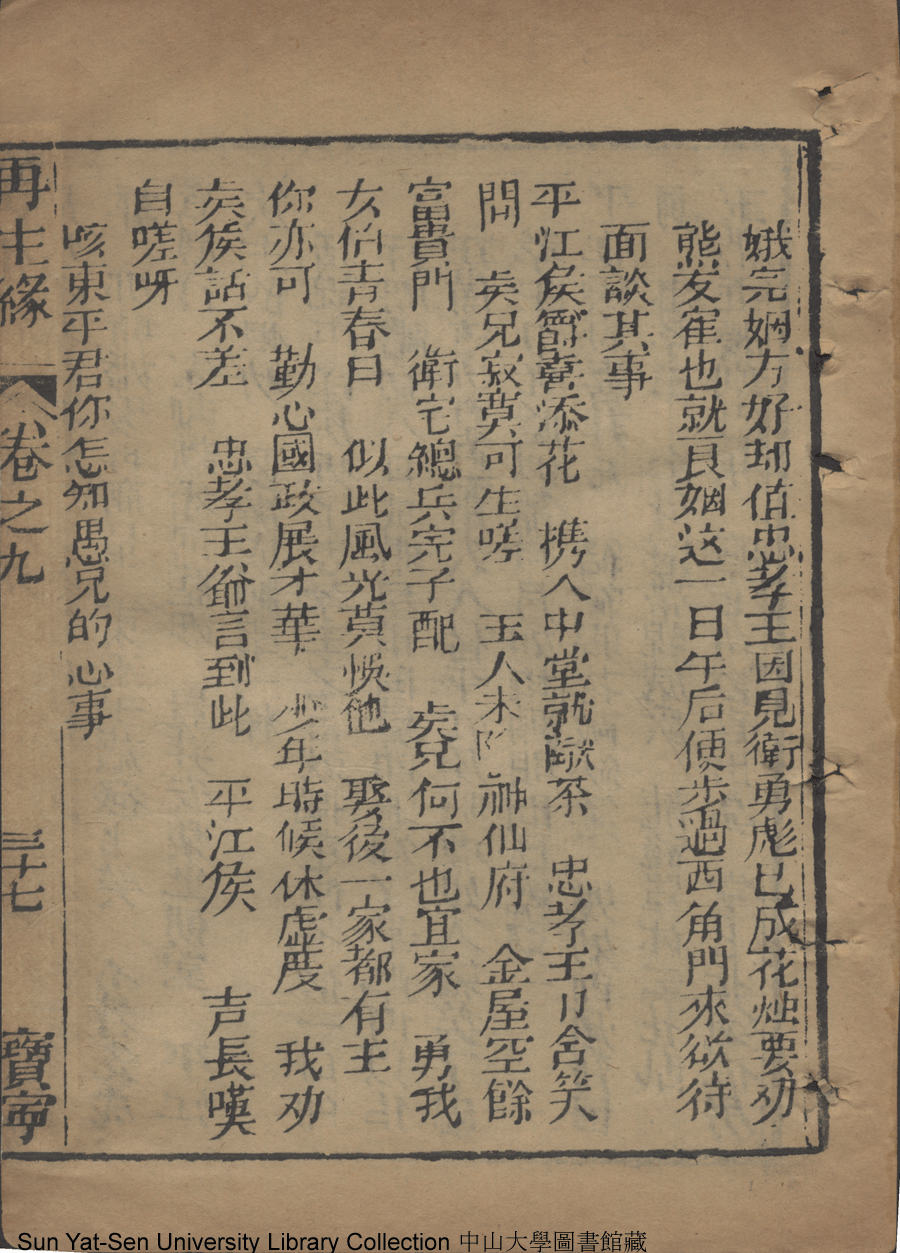 娥完姻方好却值忠孝王因見衛勇彪已成花烛要劝
熊友崔也就良姻这一日午后便步過西角門來欲待
面談其事
平江侯爵喜添花　携入中堂就献茶　忠孝王乃含笑
問　矣兄寂寞可生嗟　玉人未降神仙府　金屋空餘
富貴門　衛宅總兵完子配　矣兄何不也宜家　勇我
女伯青春日　似此風光莫悞他　娶後一家都有主
你亦可　勤心國政展才華　少年時候休虚度　我劝
矣侯話不差　忠孝王爺言到此　平江侯　吉長嘆
自嗟呀
咳東平君你怎知愚兄的心事
再生緣　卷之九　三十七　寶寧
Sun Yat-Sen University Library Collection 中山大學圖書館藏